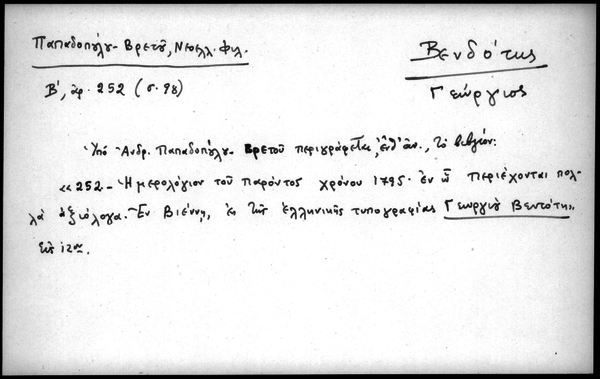 Παπαδοπούλου-Βρετοῦ, Νεοελλ. Φιλ.
Β', ἀρ. 252 (σ. 98)
Βενδότης
Γεώργιος
Ὑπό Ἀνδρ. Παπαδοπούλου-Βρετοῦ περιγράφεται, ἐνθ' ἀν., τό βιβλίον:
«252.- Ἡμερολόγιον τοῦ παρόντος χρόνου 1795. ἐν ᾧ περιέχονται πολ-
λά ἀξιόλογα. Ἐν Βιέννῃ, ἐκ τῆς ἑλληνικῆς τυπογραφίας Γεωργίου Βεντότη».
Εἰς 12ον.